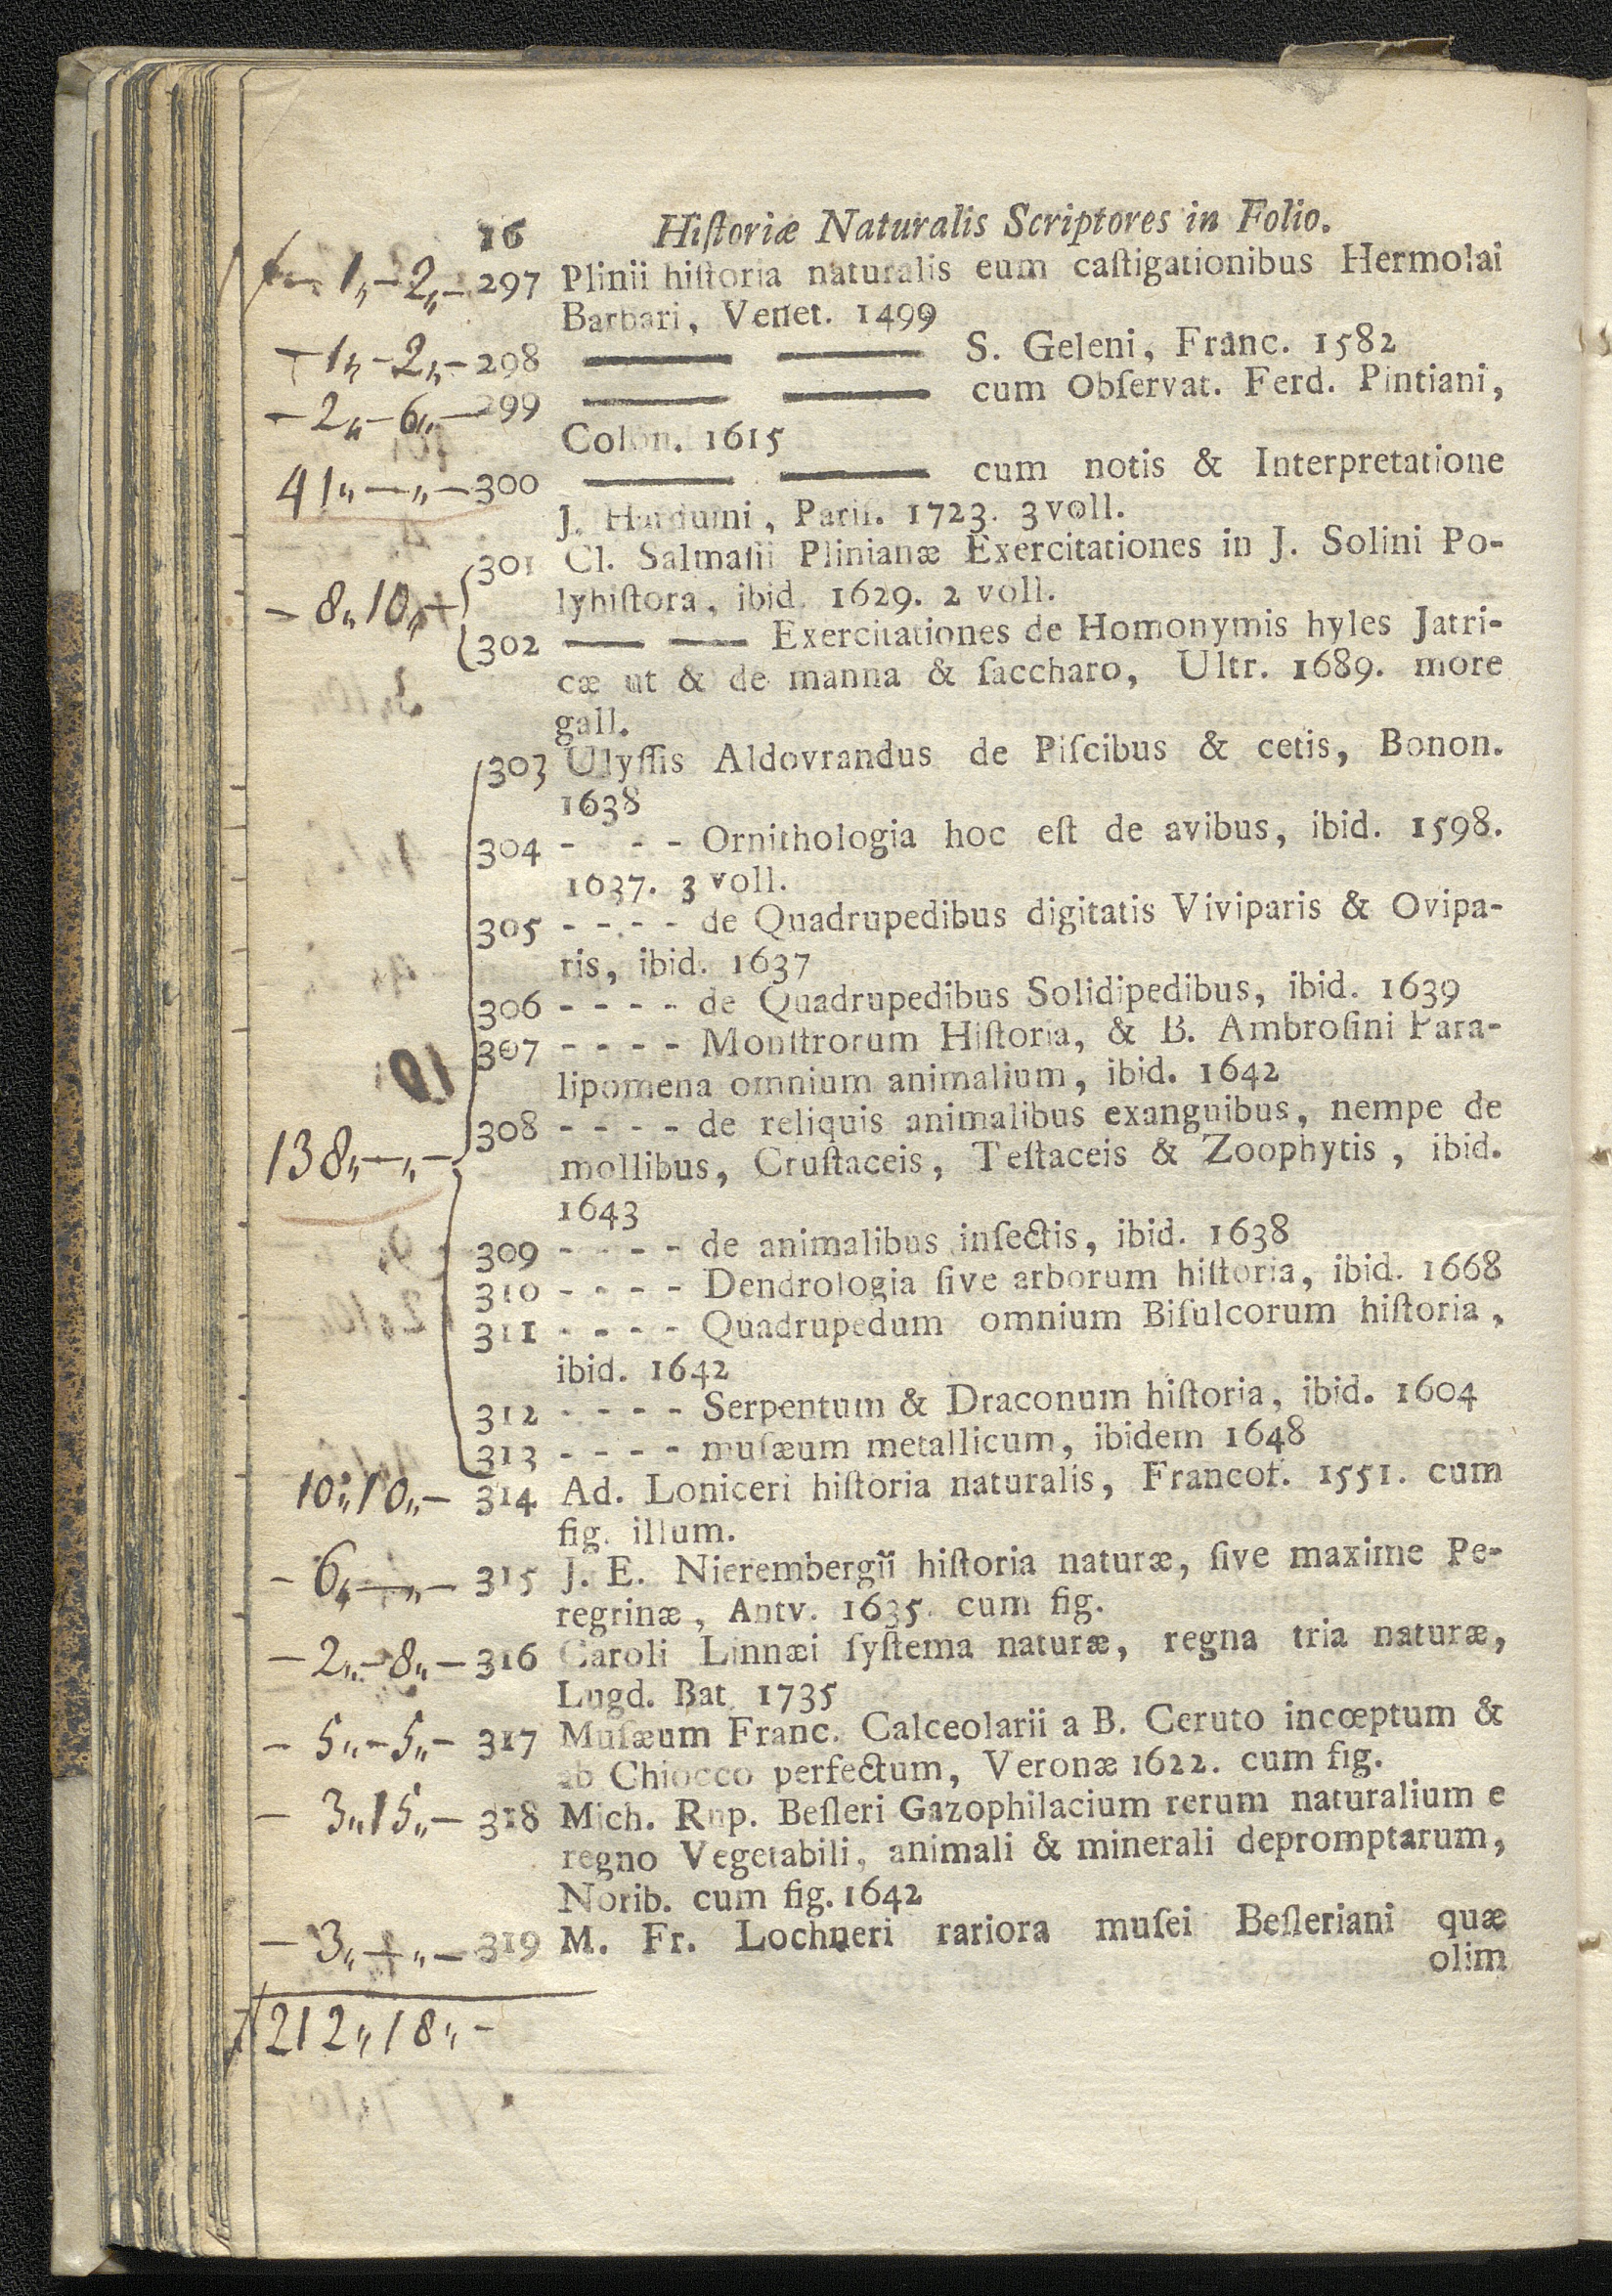 16 Hiſtoriæ Naturalis Scriptores in Folio.
1„-2„- 297 Plinii hiſtoria naturalis eum caſtigationibus Hermolai
Barbari, Venet. 1499
-1„-2„- 298 —— —— S. Geleni, Franc. 1582
-2„-6„- 299 —— —— cum Obſervat. Ferd. Pintiani,
Colon. 1615
41„-„- 300 —— —— cum notis & Interpretatione
J. Harduini, Pariſ. 1723. 3 voll.
301 Cl. Salmaſii Plinianæ Exercitationes in J. Solini Po-
-8„10„- lyhiſtora, ibid. 1629. 2 voll.
302 —— —— Exercitationes de Homonymis hyles Jatri-
cæ ut & de manna & ſaccharo, Ultr. 1689. more
gall.
303 Ulyſſis Aldovrandus de Piſcibus & cetis, Bonon.
1638
304 - - - Ornithologia hoc eſt de avibus, ibid. 1598.
1637. 3 voll.
305 - - - - de Quadrupedibus digitatis Viviparis & Ovipa-
ris, ibid. 1637
306 - - - - de Quadrupedibus Solidipedibus, ibid. 1639
307 - - - - Monſtrorum Hiſtoria, & B. Ambroſini Para-
lipomena omnium animalium, ibid. 1642
308 - - - - de reliquis animalibus exanguibus, nempe de
138„-„- mollibus, Cruſtaceis, Teſtaceis & Zoophytis, ibid.
1643
309 - - - - de animalibus inſectis, ibid. 1638
310 - - - - Dendrologia ſive arborum hiſtoria, ibid. 1668
311 - - - - Quadrupedum omnium Biſulcorum hiſtoria,
ibid. 1642
312 - - - - Serpentum & Draconum hiſtoria, ibid. 1604
313 - - - - muſæum metallicum, ibidem 1648
10„10„- 314 Ad. Loniceri hiſtoria naturalis, Francof. 1551. cum
fig. illum.
-6„-„- 315 J. E. Nierembergii hiſtoria naturæ, ſive maxime Pe-
regrinæ, Antv. 1635. cum fig.
-2„-8„- 316 Caroli Linnæi ſyſtema naturæ, regna tria naturæ,
Lugd. Bat. 1735
-5„-5„- 317 Muſæum Franc. Calceolarii a B. Ceruto incœptum &
ab Chiocco perfectum, Veronæ 1622. cum fig.
-3„15„- 318 Mich. Rup. Beſleri Gazophilacium rerum naturalium e
regno Vegetabili, animali & minerali depromptarum,
Norib. cum fig. 1642
-3„-„- 319 M. Fr. Lochneri rariora muſei Beſleriani quæ
olim
212„18„-